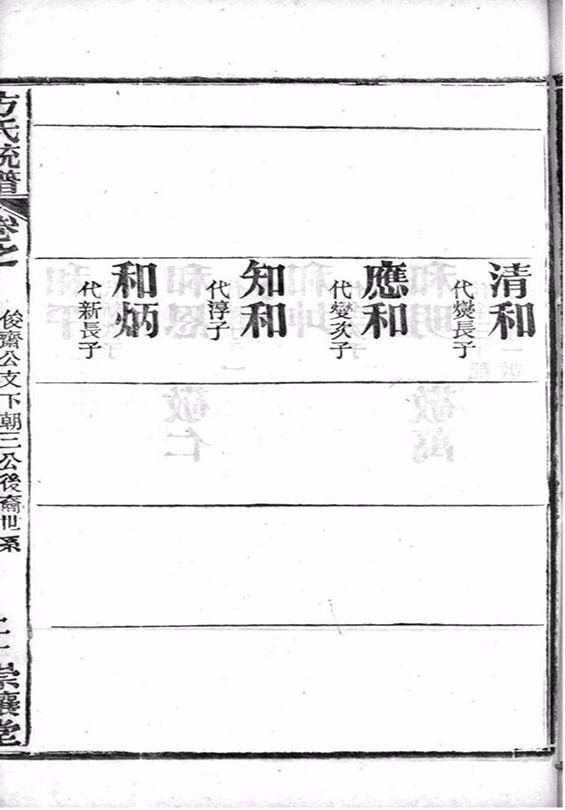 清和
代爕長子
應和
代爕次子
知和
代淳子
和炳
代新長子
方氏統譜
卷之
俊齋公支下朝三公後裔世系
崇讓堂